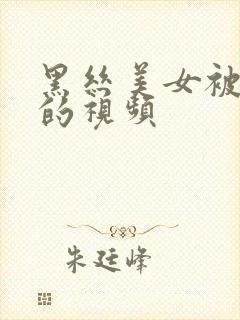 黑丝美女被
的視頻
朱廷峰